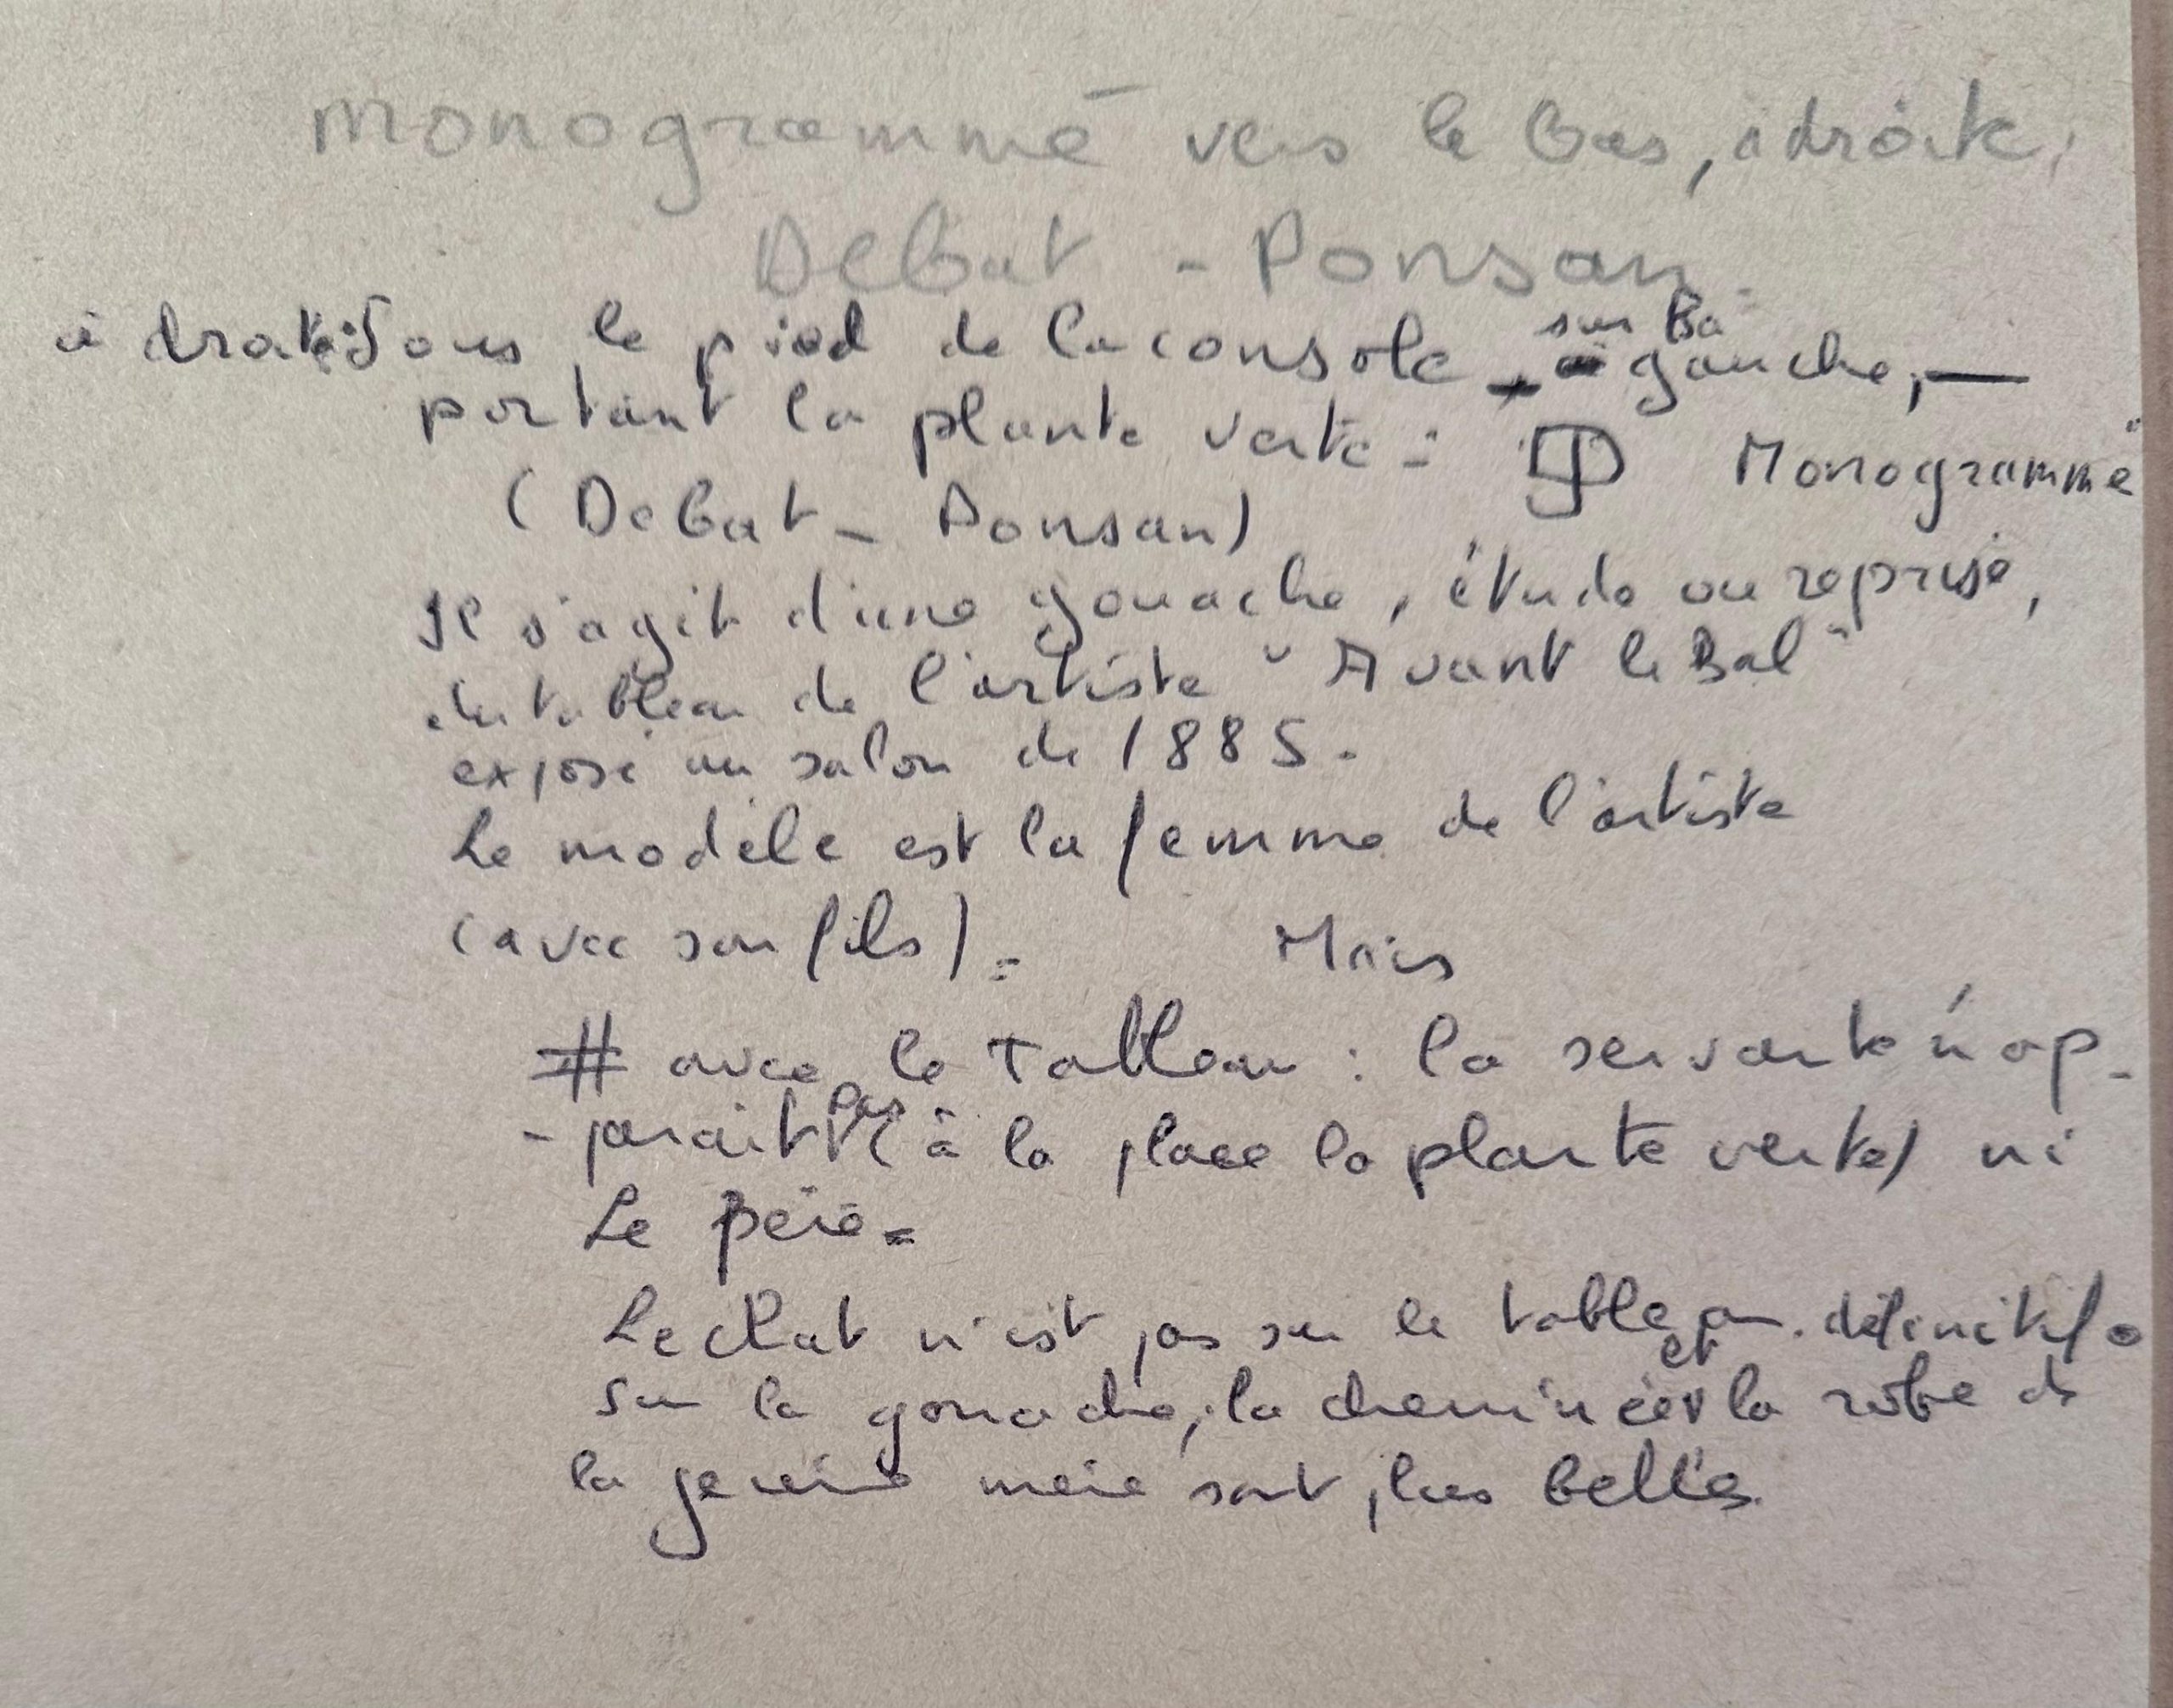 monogrammé vers le bas, à droite,
Debat - Ponsan.
à droite : Sous le pied de la console - sur la gauche, —
portant la plante verte : DP Monogramme
(Debat - Ponsan)
Il s'agit d'une gouache, étude ou reprise,
du tableau de l'artiste "Avant le Bal"
exposé au salon de 1885.
Le modèle est la femme de l'artiste
(avec son fils). Mais
# avec le Tableau : la servante n'ap-
-parait pas (à la place la plante verte) ni
Le père.
Le chat n'est pas sur le tableau définitif.
Sur la gouache, la cheminée et la robe de
la jeune mère sont plus belles.